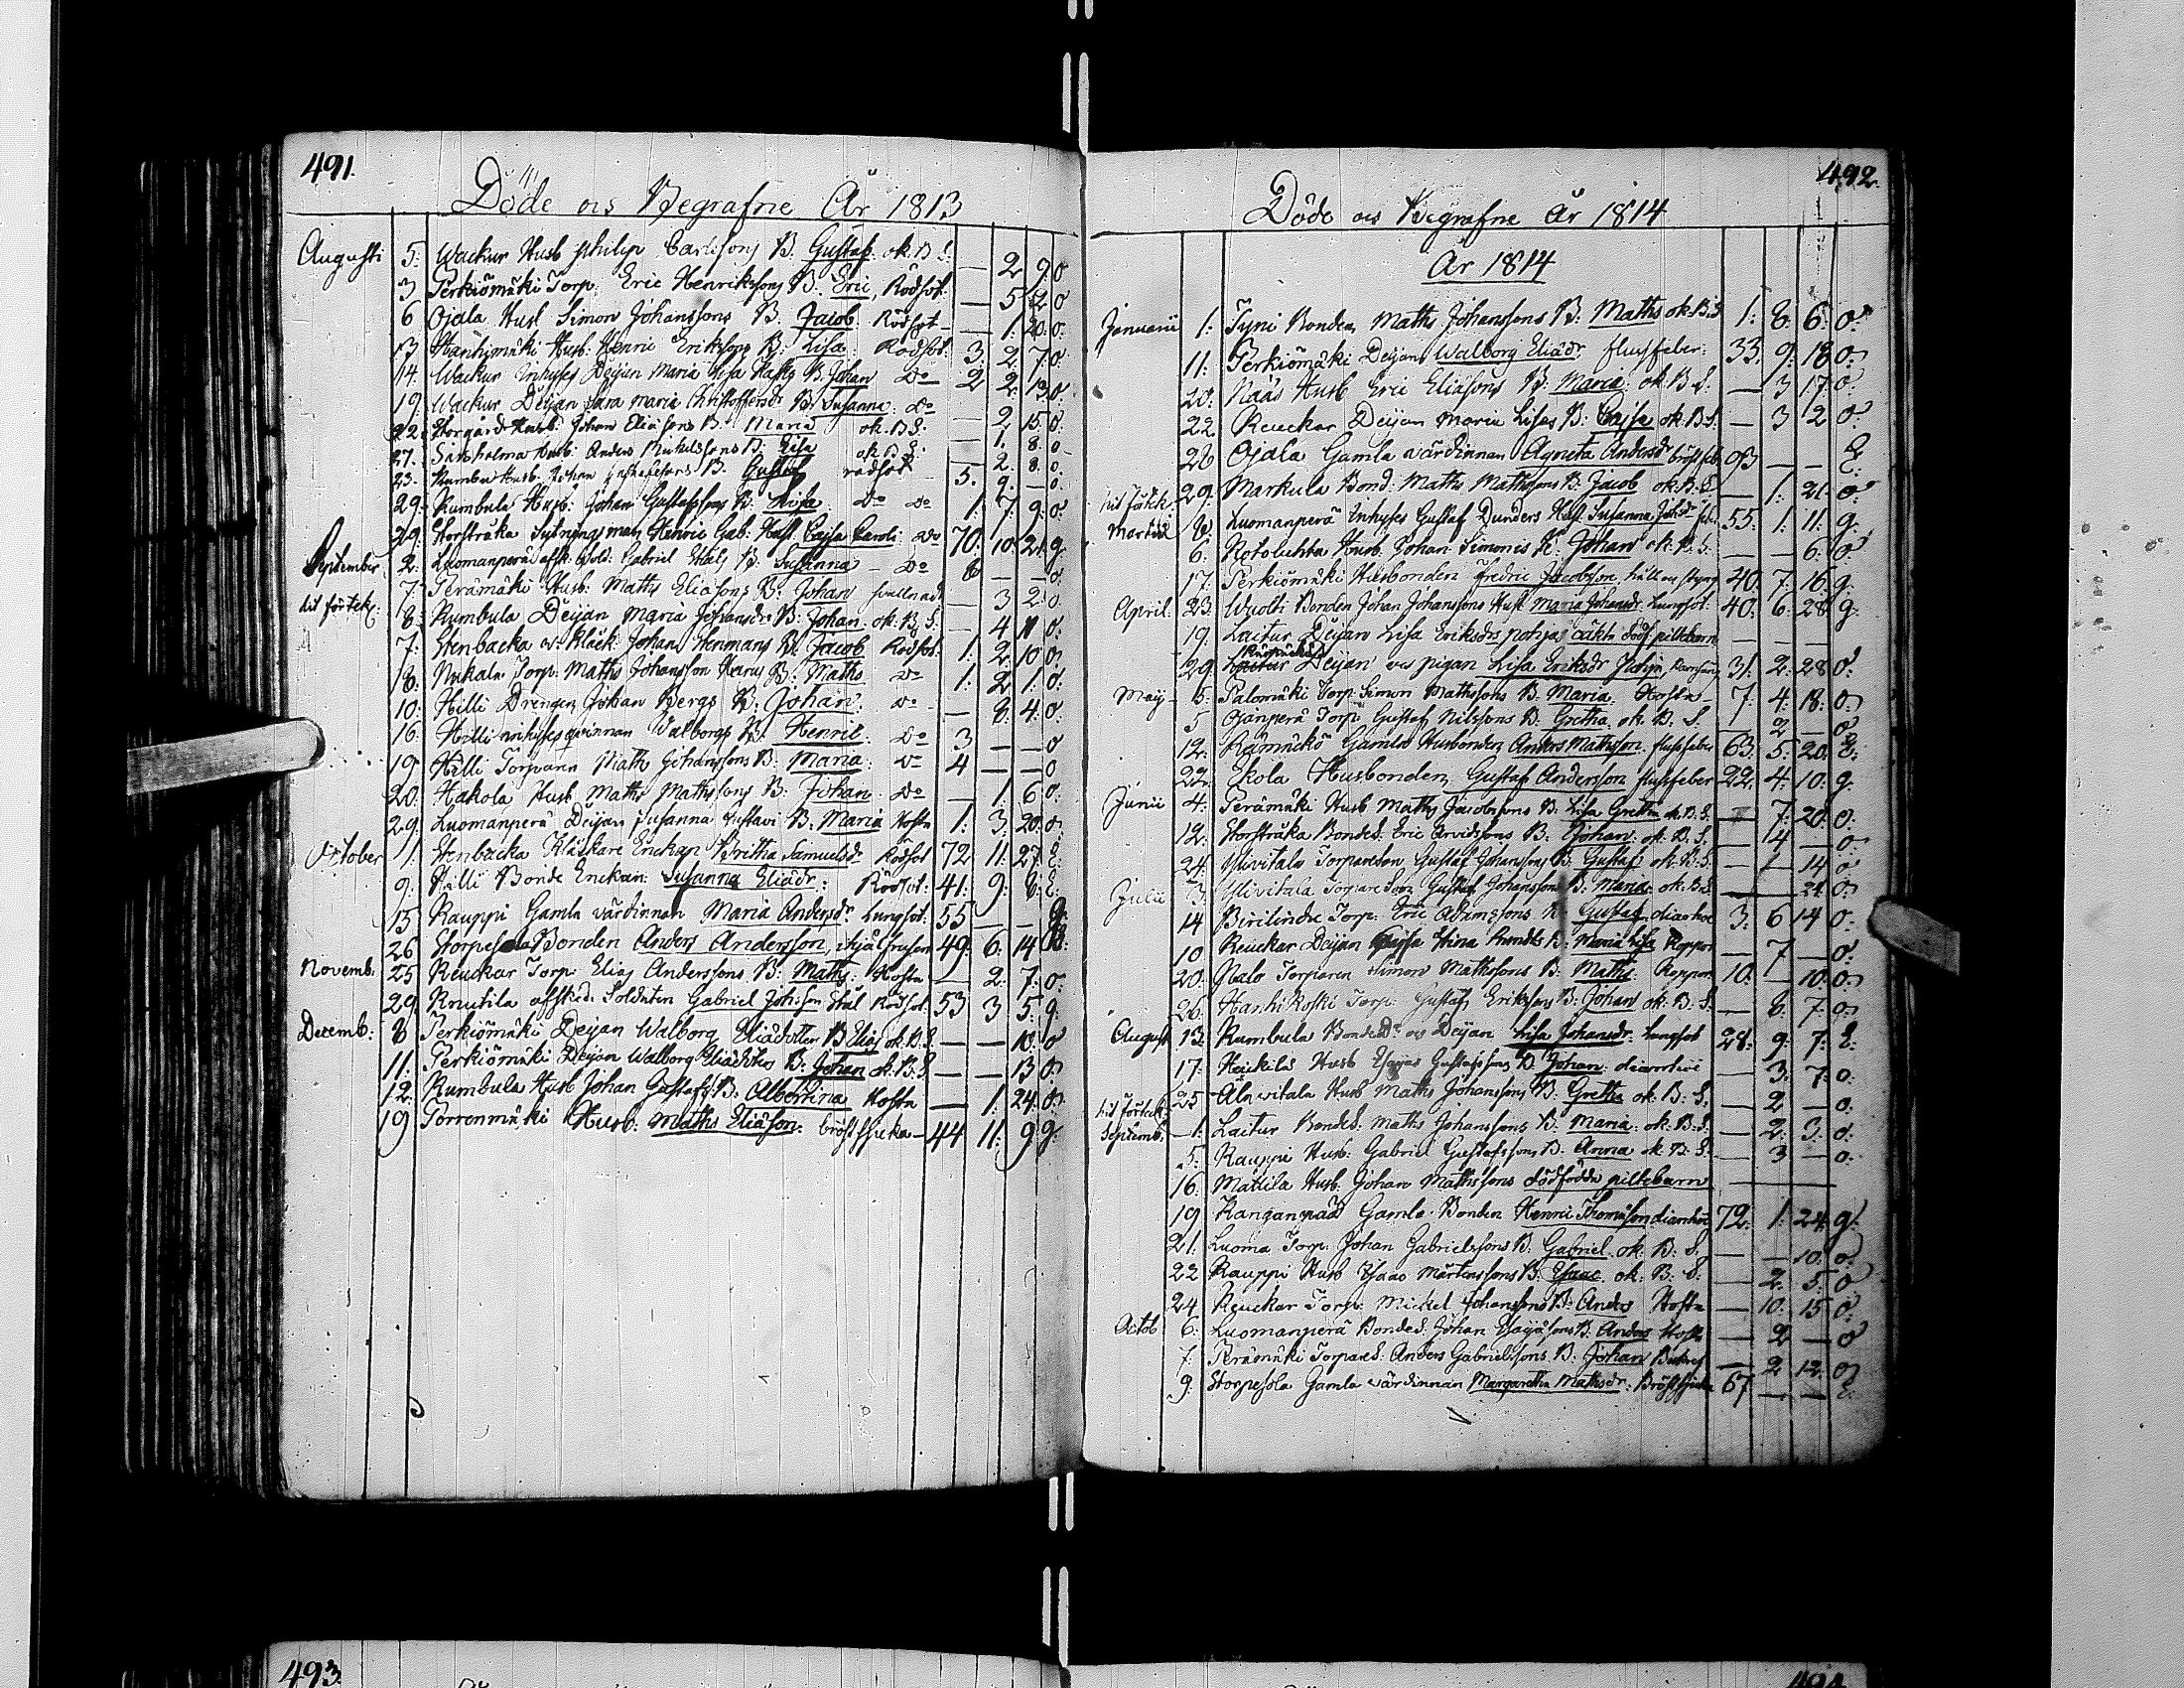 491.
Döde ois Begrafne År 1813
Augusti 5. Wackur Husb Philip Carlssons B. Gustaf ok. B. S. — 2 9 o
3 Perkiömäki Torp. Eric Henrikssons B. Eric, Rödsot. — 5 2 o
6 Ojala Husb Simon Johanssons B. Jacob Rödsot — 1. 20. o.
13 Hanhimäki Husb: Henric Erikssons B. Lisa Rödsot. 3. 2. 7. o
14. Wackur Inhyses Deijan Maria Lisa B. Johan Do 2 2. 13. o.
19. Wackur Deijan Sara Maria Christoffersdr B. Susanna. Do — 2. 15. o.
22. Storgårds Husb: Johan Eliæsons B. Maria ok. B S. — 1. 8. o
27. Husb: Anders Mickelssons B. Lisa ok B S. — 2. 8. o.
23. Husb. Johan Gustafssons B. Gustaf rödsot 5. 9. — o.
29. Rumbula Husb: Johan Gustafssons B. Lisa Do Do 1. 7. 9. o.
29. Storstråka Sytningsman Henric Gab: Hust. Caisa Caroli: Do 70. 10. 21. g.
September 2. Luomanperä afsk: Sold: Gabriel B. Susanna — Do 8 — — o.
7. Perämäki Husb: Maths Eliæsons B. Johan — 3 2. o.
lit förtek: 8. Rumbula Deijan Maria Johansdr B. Johan. ok. B. S. — 4 11 o.
7. Stenbacka Johan Stenmans B. Jacob Rödsot. 1. 2. 10 o
8. Nikala Torp: Maths Johansson B. Maths Do 1. 2 1. o.
10. Hilli Drengen Johan Bergs B. Johan. Do — 8. 4. o.
16. Hilli inhysesqvinnan Walborgs B. Henric. Do 3 — — o
19 Hilli Torparen Math Johanssons B. Maria. Do 4 — — o
20. Hakola Husb Maths Mathssons B. Johan Do — 1. 6 o.
29. Luomanperä Deijan Susanna Gustavi B. Maria Hosta 1. 3. 20. o.
October 1. Stenbacka Klåckare Enckan Britha Samuelsdr Rödsot 72 11. 27. E.
9. Hilli Bonde Enckan: Susanna Eliædr: Rödsot: 41. 9. 6. E.
15 Rauppi Gamla värdinnan Maria Andersdr Lungsot. 55 — — g.
26 Storpesola Bonden Anders Andersson, ihjälfrusen 49. 6. 14
Novemb. 25 Reuckar Torp Elias Anderssons B. Maths. Hosta — 2. 7. o.
29. Knutila afsked: Soldaten Gabriel Joh:son Stål Rödsot. 53 3 5. g.
Decemb: 8 Perkiömäki Deijan Walborg Eliædotter B. Elias ok. B. S. — — 10. o
11. Perkiömäki Deijan Walborg Eliædotters B. Johan ok. B. S — — 13 o
12. Rumbula Husb Johan Gustafss B. Albertina Hosta — 1. 24. o
19 Porrenmäki Husb: Maths Eliæson. bröstsjuka — 44 11. 9 g.
492.
Döde ois Begrafne År 1814
År 1814
Januarii 1. Tyni Bonden Maths Johanssons B. Maths ok. B. S 1. 8. 6. o.
11. Perkiömäki Deijan Walborg Eliædr flussfeber. 33. 9. 18 o
20. Näås Husb Eric Eliæsons B. Maria. ok. B S. — 3 17. o.
22. Reuckar Deijan Maria Lisas B. Caisa ok. B S. — 3 2 o
28 Ojala Gamla värdinnan Agneta Andersdr 93 — — E.
29. Markula Bond: Maths Mathssons B. Jacob ok. B. S — 1. 21. o.
lit förtek:
Martii 8. Luomanperä Inhyses Gustaf Dunders Hust. Susanna Joh:dr 55. 1. 11. g.
6. Kotoluhta Husb. Johan Simonis B. Johan ok. B. S. — — 6. o
17. Perkiömäki Husbonden Fredric Jacobsson. håll och styng 40. 7. 16. g.
April 23. Wuolti Bonden Johan Johanssons Hust Maria Johansdr. Lungsot. 40. 6. 28. g.
19. Laitur Deijan Lisa Eriksdrs oäkta dödf. piltebarn — — —
29. Deijan och pigan Lisa Eriksdr 31. 2. 28 o.
Maij 5. Palomäki Torp Simon Mathssons B. Maria. Hosta 7. 4. 18. o
5 Ojanperä Torp Gustaf Nilssons B. Gretha ok. B. S. — 2 — o
12. Rämäckö Gamla Husbonden Anders Mathsson. flussfeber 63. 5. 20. E.
22. Ikola Husbonden Gustaf Andersson flussfeber 22. 4. 10. g.
Junii 4. Perämäki Husb Maths Jacobssons B. Lisa Gretha ok. B. S. — 7. 20. o.
12. Storstråka Bondes. Eric Arvidssons B. Johan. ok. B. S. — 14 — o.
24. Ylivitala Torparedson Gustaf Johanssons B. Gustaf ok. B. S. — 1 14 o
Julii 3. Ylivitala Torpareson Gustaf Johanssons B. Maria ok. B. S. — — 21. o.
14 Birilinda Torp. Eric Adamssons B. Gustaf. diarhoe 3. 6 14 o.
10 Reuckar Deijan Caisa Stina B. Maria Lisa Koppor — 7 — o.
20. Nalo Torparen Simon Mathssons B. Maths. Koppor 10. — 10. o
26. Hanhikoski Torp. Gustaf Erikssons B. Johan ok. B. S. — 8. 7. o
August 13. Rumbula Bondedr ois Deijan Lisa Johansdr. Lungsot 28. 9. 7. E.
17. Heikilä Husb Esaias Gustafssons B. Johan. diarrhoe — 3. 7. o.
lit förtek: 25 Ala witala Husb Maths Johanssons B. Gretha ok. B. S. — 2 — o.
Septemb. — 1. Laitur Bondes. Maths Johanssons B. Maria. ok. B. S. — 2. 3. o.
5. Rauppi Husb: Gabriel Gustafssons B. Anna ok. B. S. — 3 — o.
16. Mattila Husb: Johan Mathssons dödfödda piltebarn
19 Kanganpää Gamla Bonden Henric Thomasson diarrhoe 72. 1. 24. g.
21. Luoma Torp: Johan Gabrielssons B. Gabriel. ok. B. S. — — 10. o.
22 Rauppi Husb Isaac Mårtenssons B. Isaac ok: B. S. — 2. 5. o
24 Reuckar Torp. Mickel Johanssons B. Anders Hosta — 10. 15 o.
Octob 6. Luomanperä Bondes. Johan Esaijæsons B. Anders Hosta — 2 — o
7. Perämäki Torpares. Anders Gabrielssons B. Johan — 2 12. o
9. Storpesola Gamla värdinnan Margaretha Mathsdr. Bröstsjuka 67 — — E.
493.
494